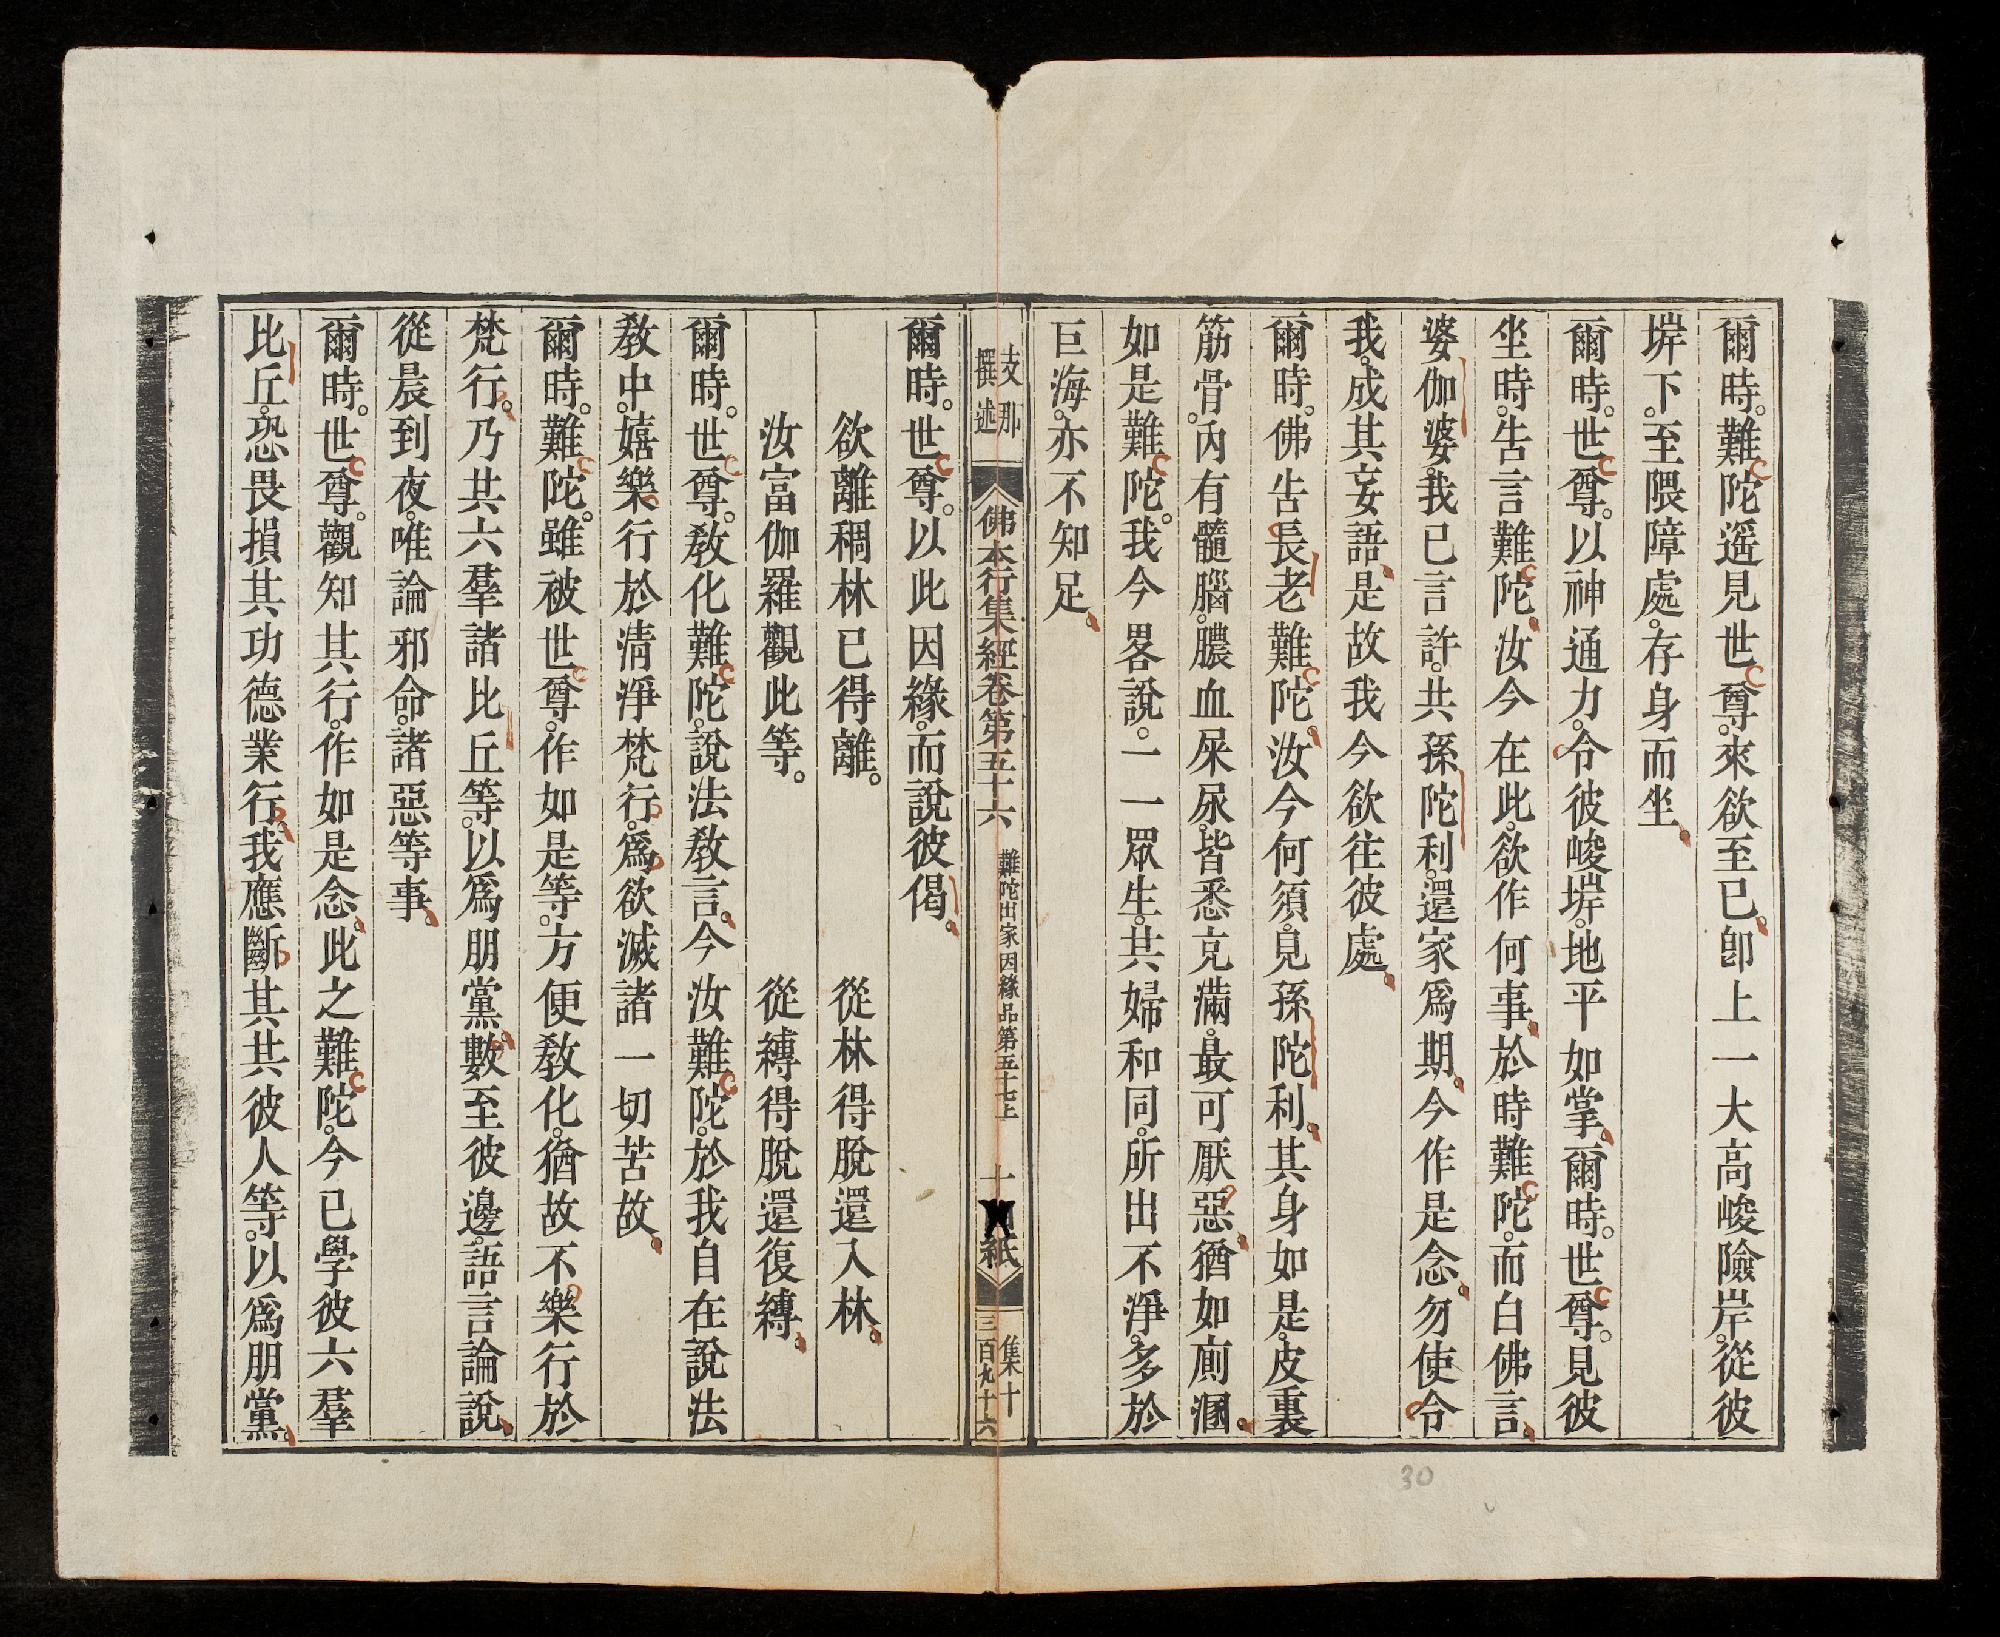 爾時。難陀遥見世尊。來欲至巳。卽上一大高峻險岸。從彼
㟁下。至隈障處。存身而坐。
爾時。世尊。以神通力。令彼峻㟁。地平如掌。爾時。世尊。見彼
坐時。告言難陀。汝今在此。欲作何事。於時難陀。而白佛言。
婆伽婆。我已言許。共孫陀利。還家爲期。今作是念。勿使令
我。成其妄語。是故我今欲往彼處。
爾時。佛告長老難陀。汝今何須。見孫陀利。其身如是。皮裏
筋骨。內有髓腦。膿血屎尿。皆悉充滿。最可厭惡。猶如廁溷。
如是難陀。我今畧說。一一眾生。共婦和同。所出不淨。多於
巨海。亦不知足。
支那
撰述
佛本行集經卷第五十六
難陀出家因緣品第五十七上
十
紙
集十
三百九十六
爾時。世尊。以此因緣。而說彼偈。
欲離稠林已得離。 從林得脫還入林。
汝富伽羅觀此等。 從縛得脫還復縛。
爾時。世尊。敎化難陀。說法敎言。今汝難陀。於我自在說法
敎中。嬉樂行於淸淨梵行。爲欲滅諸一切苦故。
爾時。難陀。雖被世尊。作如是等。方便敎化。猶故不樂行於
梵行。乃共六羣諸比丘等。以爲朋黨。數至彼邊。語言論說。
從晨到夜。唯論邪命。諸惡等事。
爾時。世尊。觀知其行。作如是念。此之難陀。今已學彼六羣
比丘。恐畏損其功德業行。我應斷其共彼人等。以爲朋黨。
30